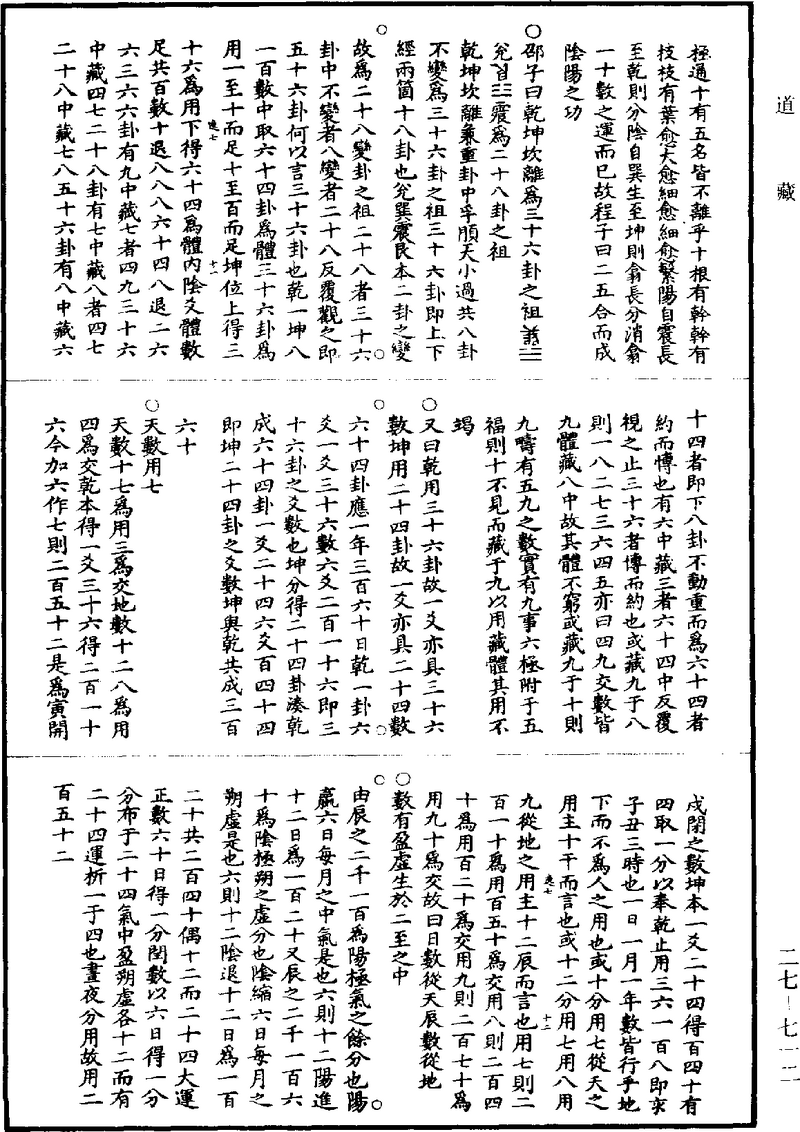 道藏
極通十有五名皆不離乎十根有幹幹有
枝枝有葉愈大愈細愈細愈繁陽自震長
至乾則分陰自巽生至坤則翕長分消翕
一十數之運而已故程子曰二五合而成
陰陽之功
○邵子曰乾坤坎離爲三十六卦之祖義三三
兊艮三三震爲二十八卦之祖
乾坤坎離兼重卦中孚順天小過共八卦
不變爲三十六卦之祖三十六卦即上下
經兩箇十八卦也兊巽震艮本二卦之變
故爲二十八變卦之祖二十八者三十六
卦中不變者八變者二十八反覆觀之即
五十六卦何以言三十六卦也乾一坤八
一百數中取六十四卦爲體三十六卦爲
用一至十而足十至百而足坤位上得三
十六爲用下得六十四爲體內陰爻體數
足共百數十退八八八六十四八退二六
六三六六卦有九中藏七者四九三十六
中藏四七二十八卦有七中藏八者四七
二十八中藏七八五十六卦有八中藏六
十四者即下八卦不動重而爲六十四者
約而慱也有六中藏三者六十四中反覆
視之止三十六者慱而約也或藏九于八
則一八二七三六四五亦曰四九交數皆
九體藏八中故其體不窮或藏九于十則
九疇有五九之數實有九事六極附于五
福則十不見而藏于九以用藏體其用不
竭
○又曰乾用三十六卦故一爻亦具三十六
數坤用二十四卦故一爻亦具二十四數
六十四卦應一年三百六十日乾一卦六
爻一爻三十六數六爻二百一十六即三
十六卦之爻數也坤分得二十四卦湊乾
成六十四卦一爻二十四六爻百四十四
即坤二十四卦之爻數坤與乾共成三百
六十
○天數用七
天數十七爲用三爲交地數十二八爲用
四爲交乾本得一爻三十六得二百一十
六今加六作七則二百五十二是爲寅開
戍閉之數坤本一爻二十四得百四十有
四取一分以奉乾止用三六一百八即亥
子丑三時也一日一月一年數皆行乎地
下而不爲人之用也或十分用七從天之
用主十干而言也或十二分用七用八用
九從地之用主十二辰而言也用七則二
百一十爲用百五十爲交用八則二百四
十爲用百二十爲交用九則二百七十爲
用九十爲交故曰日數從天辰數從地
○數有盈虛生於二至之中
由辰之二千一百爲陽極氣之餘分也陽
贏六日每月之中氣是也六則十二陽進
十二日爲一百二十又辰之二千一百六
十爲陰極朔之虛分也陰縮六日每月之
朔虛是也六則十二陰退十二日爲一百
二十共二百四十偶十二而二十四大運
正數六十日得一分閏數以六日得一分
分布于二十四氣中盈朔虛各十二而有
二十四運析一于四也晝夜分用故用二
百五十二
二七—七一二